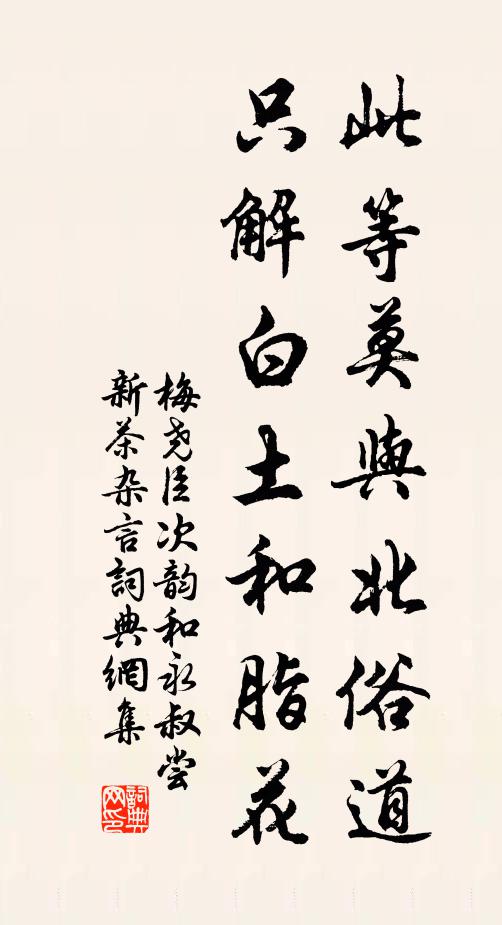 此等莫與北俗道
只解白土和脂花
梅尧臣次韵和永叔尝
新茶杂言詞典網集
詞典
网印